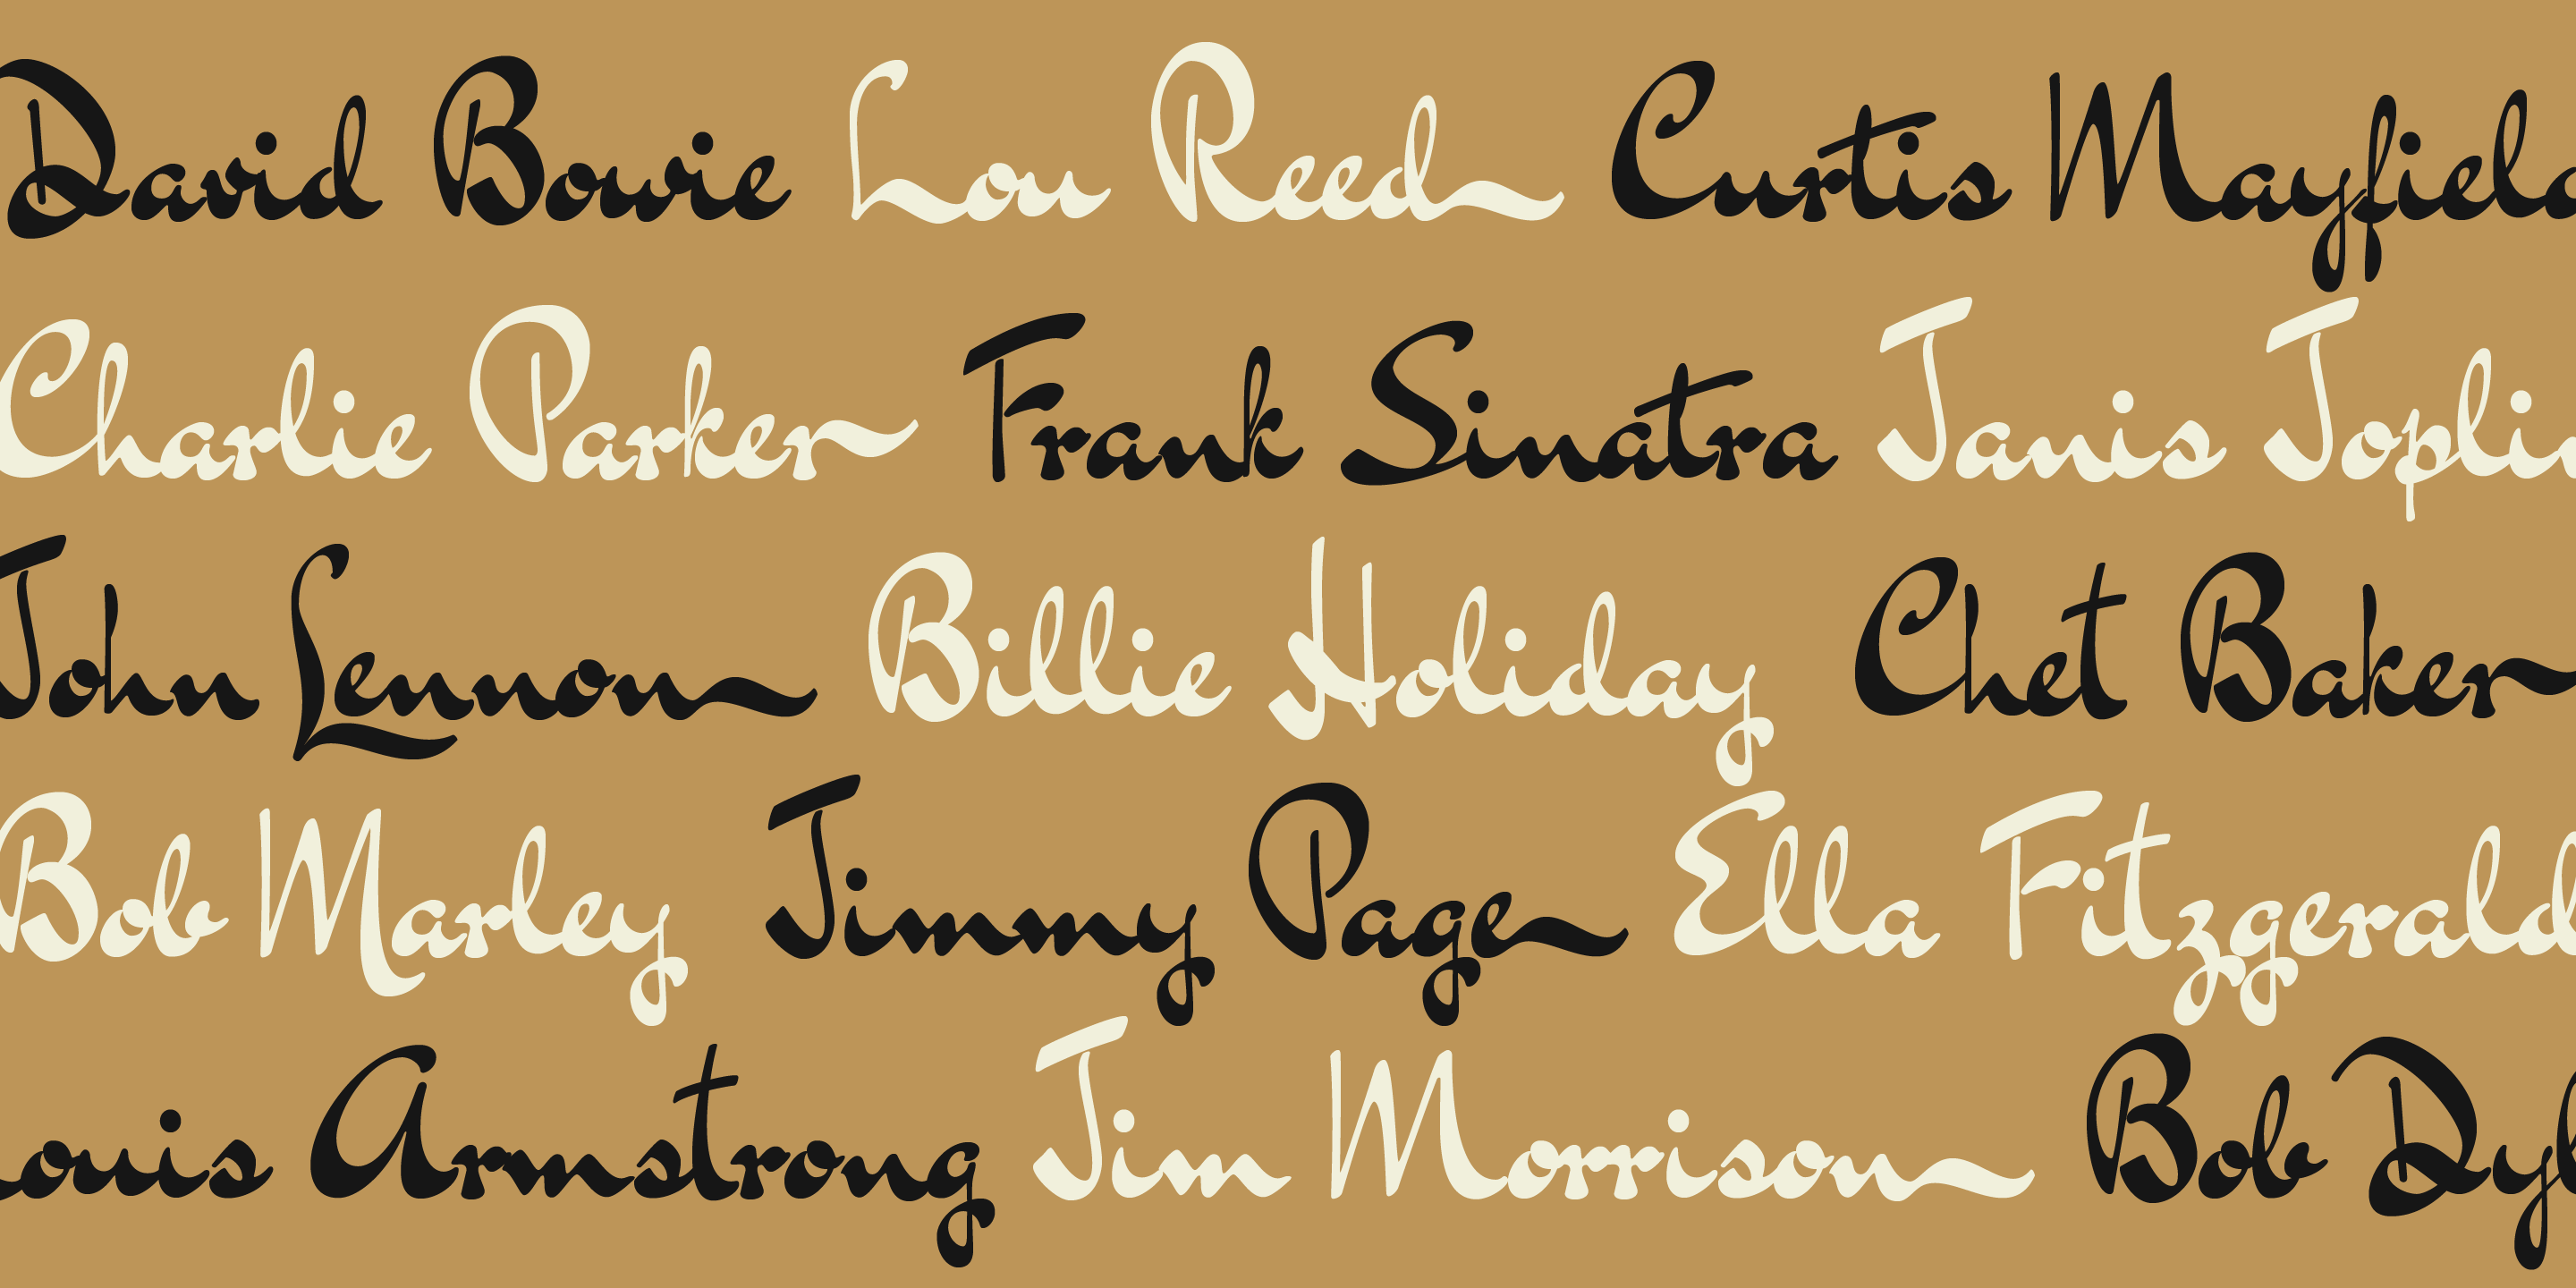 David Bowie Lou Reed Curtis Mayfield
Charlie Parker Frank Sinatra Janis Joplin
John Lennon Billie Holiday Chet Baker
Bob Marley Jimmy Page Ella Fitzgerald
Louis Armstrong Jim Morrison Bob Dyl